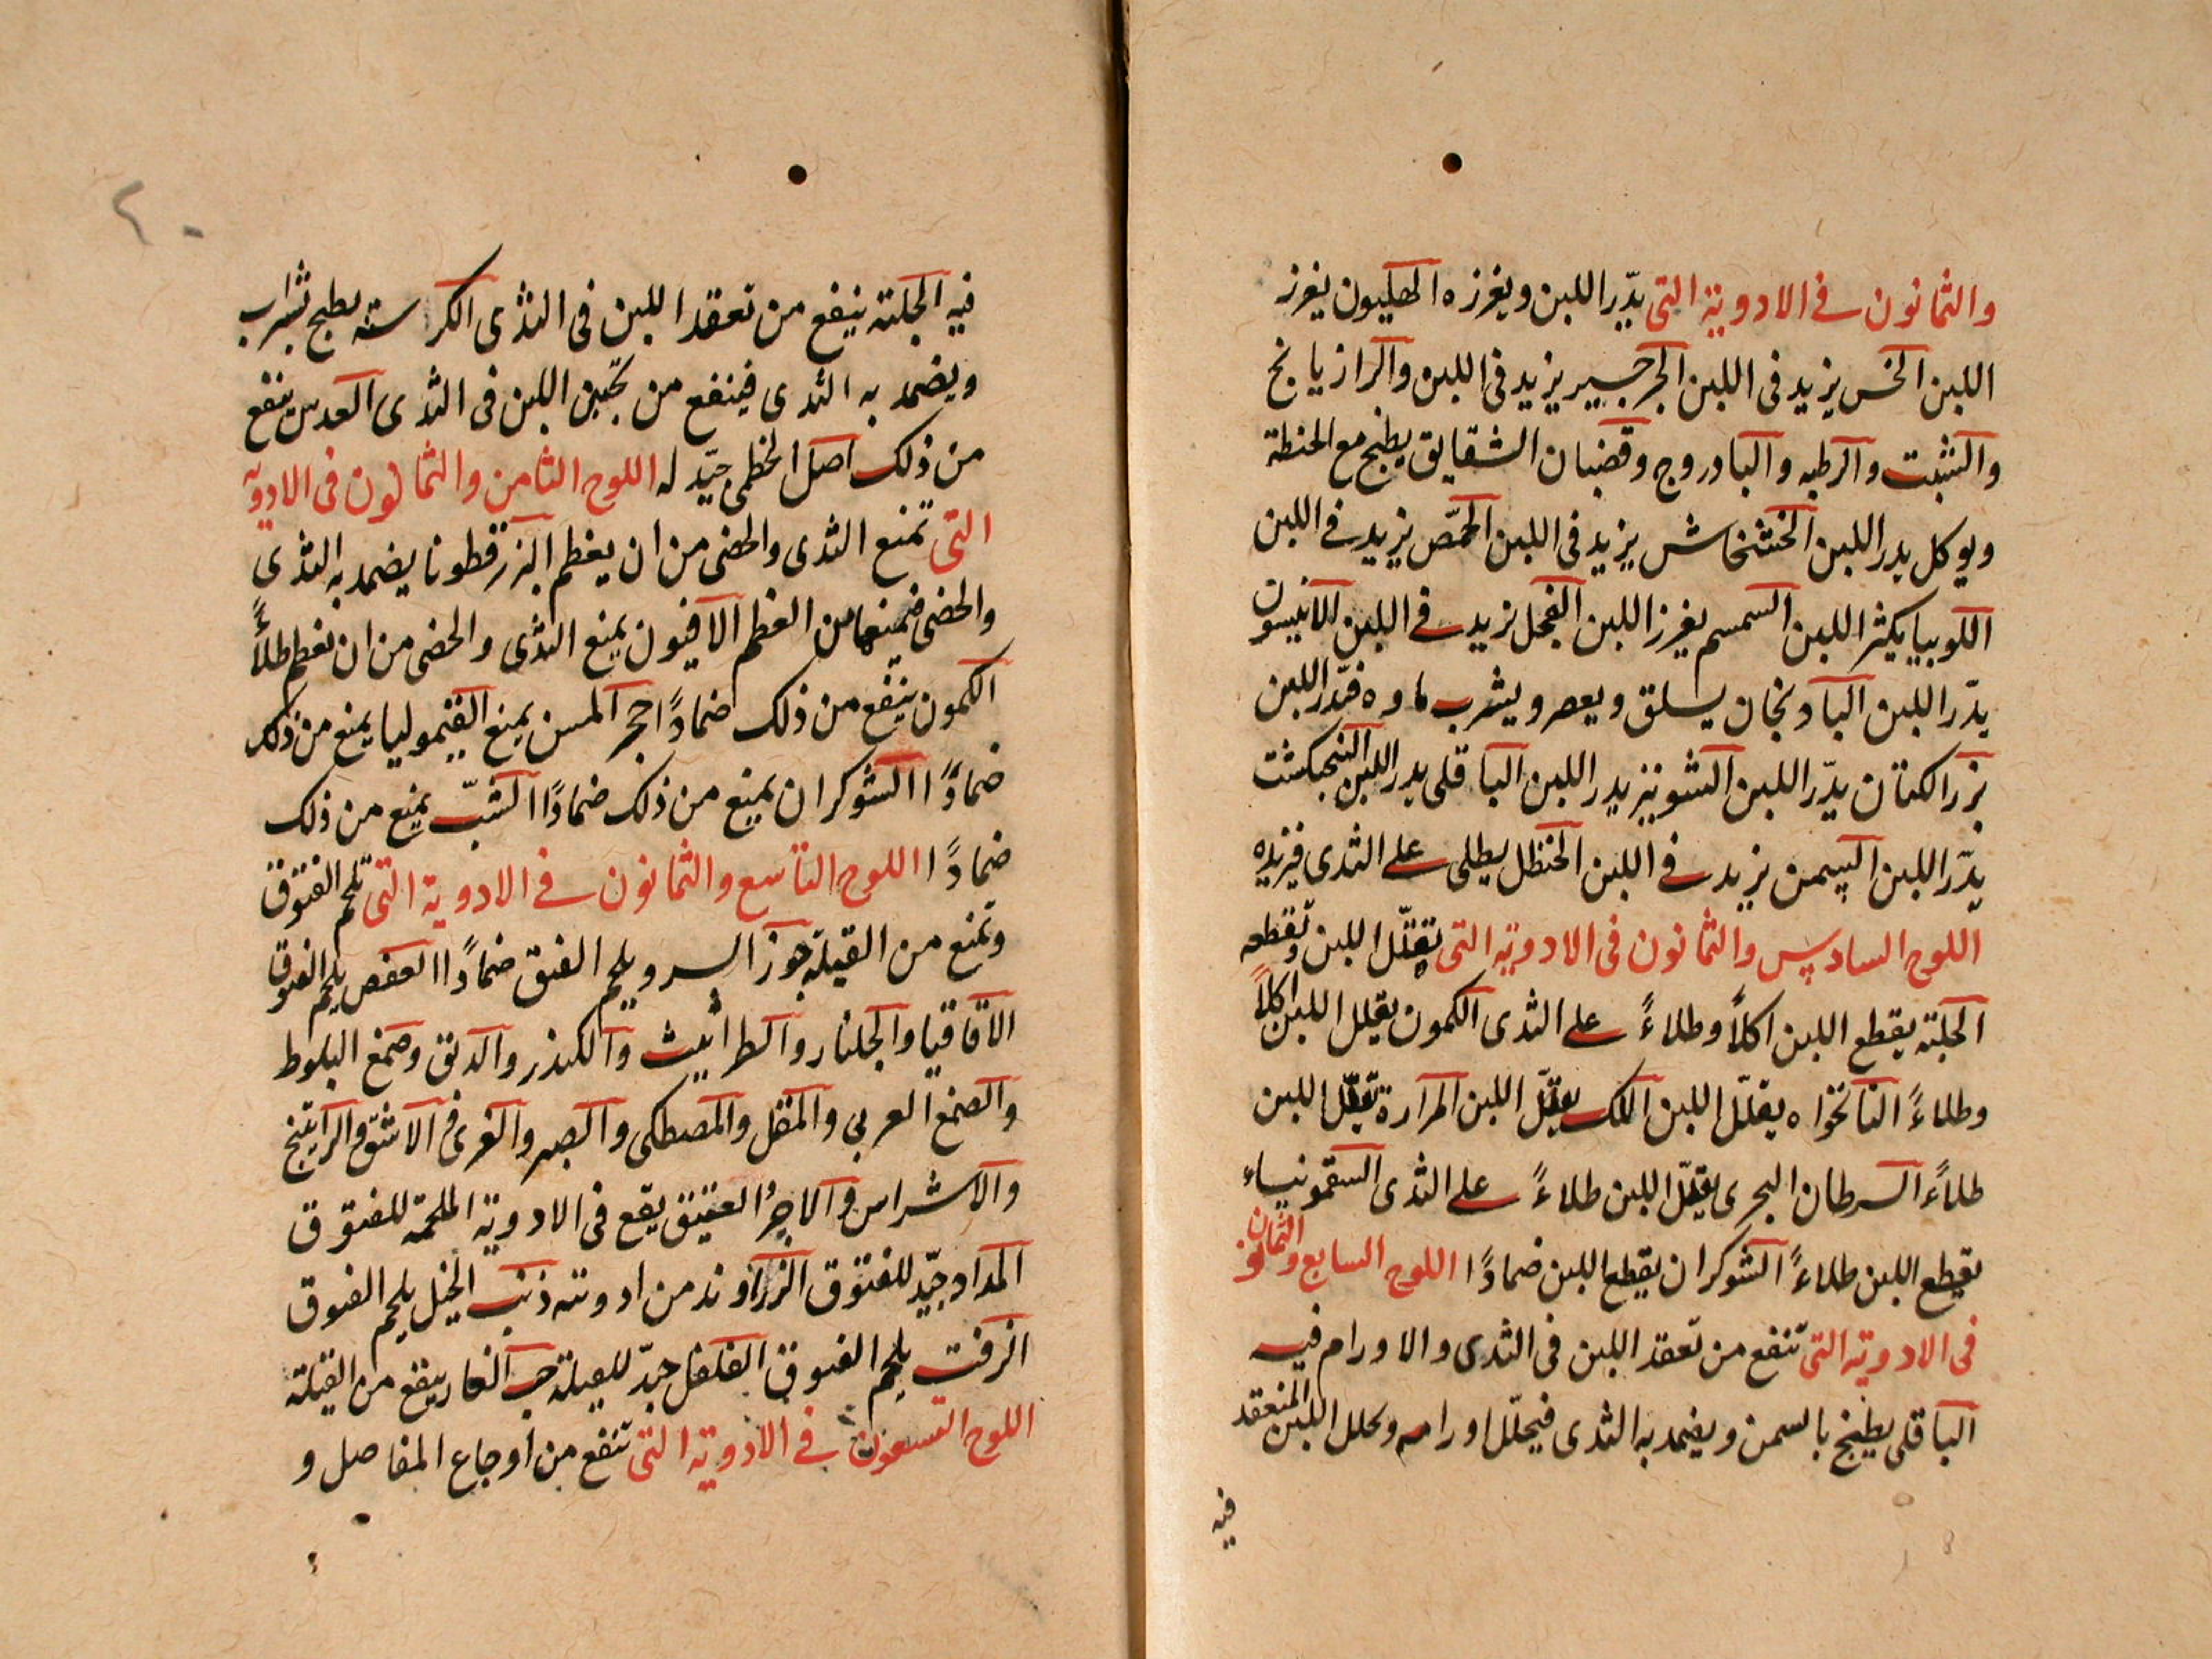 والثمانون فى الادوية التى يدّر اللبن ويغرزه الهليون يغرز
اللبن الخس يزيد فى اللبن الجرجير يزيد فى اللبن والرازيانج
والشبت والرطبه والبادروج وقضبان الشقايق يطبخ مع الحنطة
ويوكل يدر اللبن الخشخاش يزيد فى اللبن الحمّص يزيد فى اللبن
اللوبيا يكثر اللبن السمسم يغرز اللبن الفجل يزيد فى اللبن الانيسون
يدّر اللبن البادنجان يسلق ويعصر ويشرب ماوه فيّدر اللبن
بزر الكتان يدّر اللبن الشونيز يدر اللبن الباقلى يدر اللبن البنجكشت
يدّر اللبن السمن يزيد فى اللبن الحنظل يطلى على الثدى فيزيده
اللوح السادس والثمانون فى الادويه التى تقلّل اللبن وتقطعه
الحلبه يقطع اللبن اكلاً وطلاءً على الثدى الكمون يقلل اللبن اكلاً
وطلاءً النانخواه يقلّل اللبن اللك يقلّل اللبن المرارة تقلّل اللبن
طلاءً السرطان البحرى يقلّل اللبن طلاءً على الثدى السقمونياء
يقطع اللبن طلاءً الشوكران يقطع اللبن ضمادًا اللوح السابع والثمانون
فى الادويه التى تنفع من تعقد اللبن فى الثدى والاورام فيه
الباقلى يطبخ بالسمن ويضمد به الثدى فيحلّل اورامه ويحلل اللبن المنعقد
فيه
٢٠
فيه الحلبه ينفع من تعقد اللبن فى الثدى الكرسنه يطبخ بشراب
ويضمد به الثدى فينفع من تجبن اللبن فى الثدى العدس ينفع
من ذلك اصل الخطمى جيّد له اللوح الثامن والثمانون فى الادويه
التى تمنع الثدى والخصى من ان يعظم البزرقطونا يضمد به الثدى
والخصى فيمنعها من العظم الافيون يمنع الثدى والخصى من ان تعظم طلاءً
الكمون ينفع من ذلك ضمادًا حجر المسن يمنع القيموليا يمنع من ذلك
ضمادًا الشوكران يمنع من ذلك ضمادًا الشبّ يمنع من ذلك
ضمادًا اللوح التاسع والثمانون فى الادوية التى تلحم الفتوق
وتمنع من القيله جوز السرو يلحم الفتق ضمادًا العفص يلحم الفتوق
الاقاقيا والجلنار والطراثيث والكندر والدبق وصمغ البلوط
والصمغ العربي والمقل والمصطكى والصبر والغرى الاشق والراتينج
والاشراس والاجر العتيق يقع فى الادويه الملحمه للفتوق
المداد جيّد للفتوق الزراوند من ادويته ذنب الخيل يلحم الفتوق
الزفت يلحم الفتوق الفلفل جيّد للقيلة حب الغار ينفع من القيله
اللوح التسعون فى الادويه التى تنفع من اوجاع المفاصل و